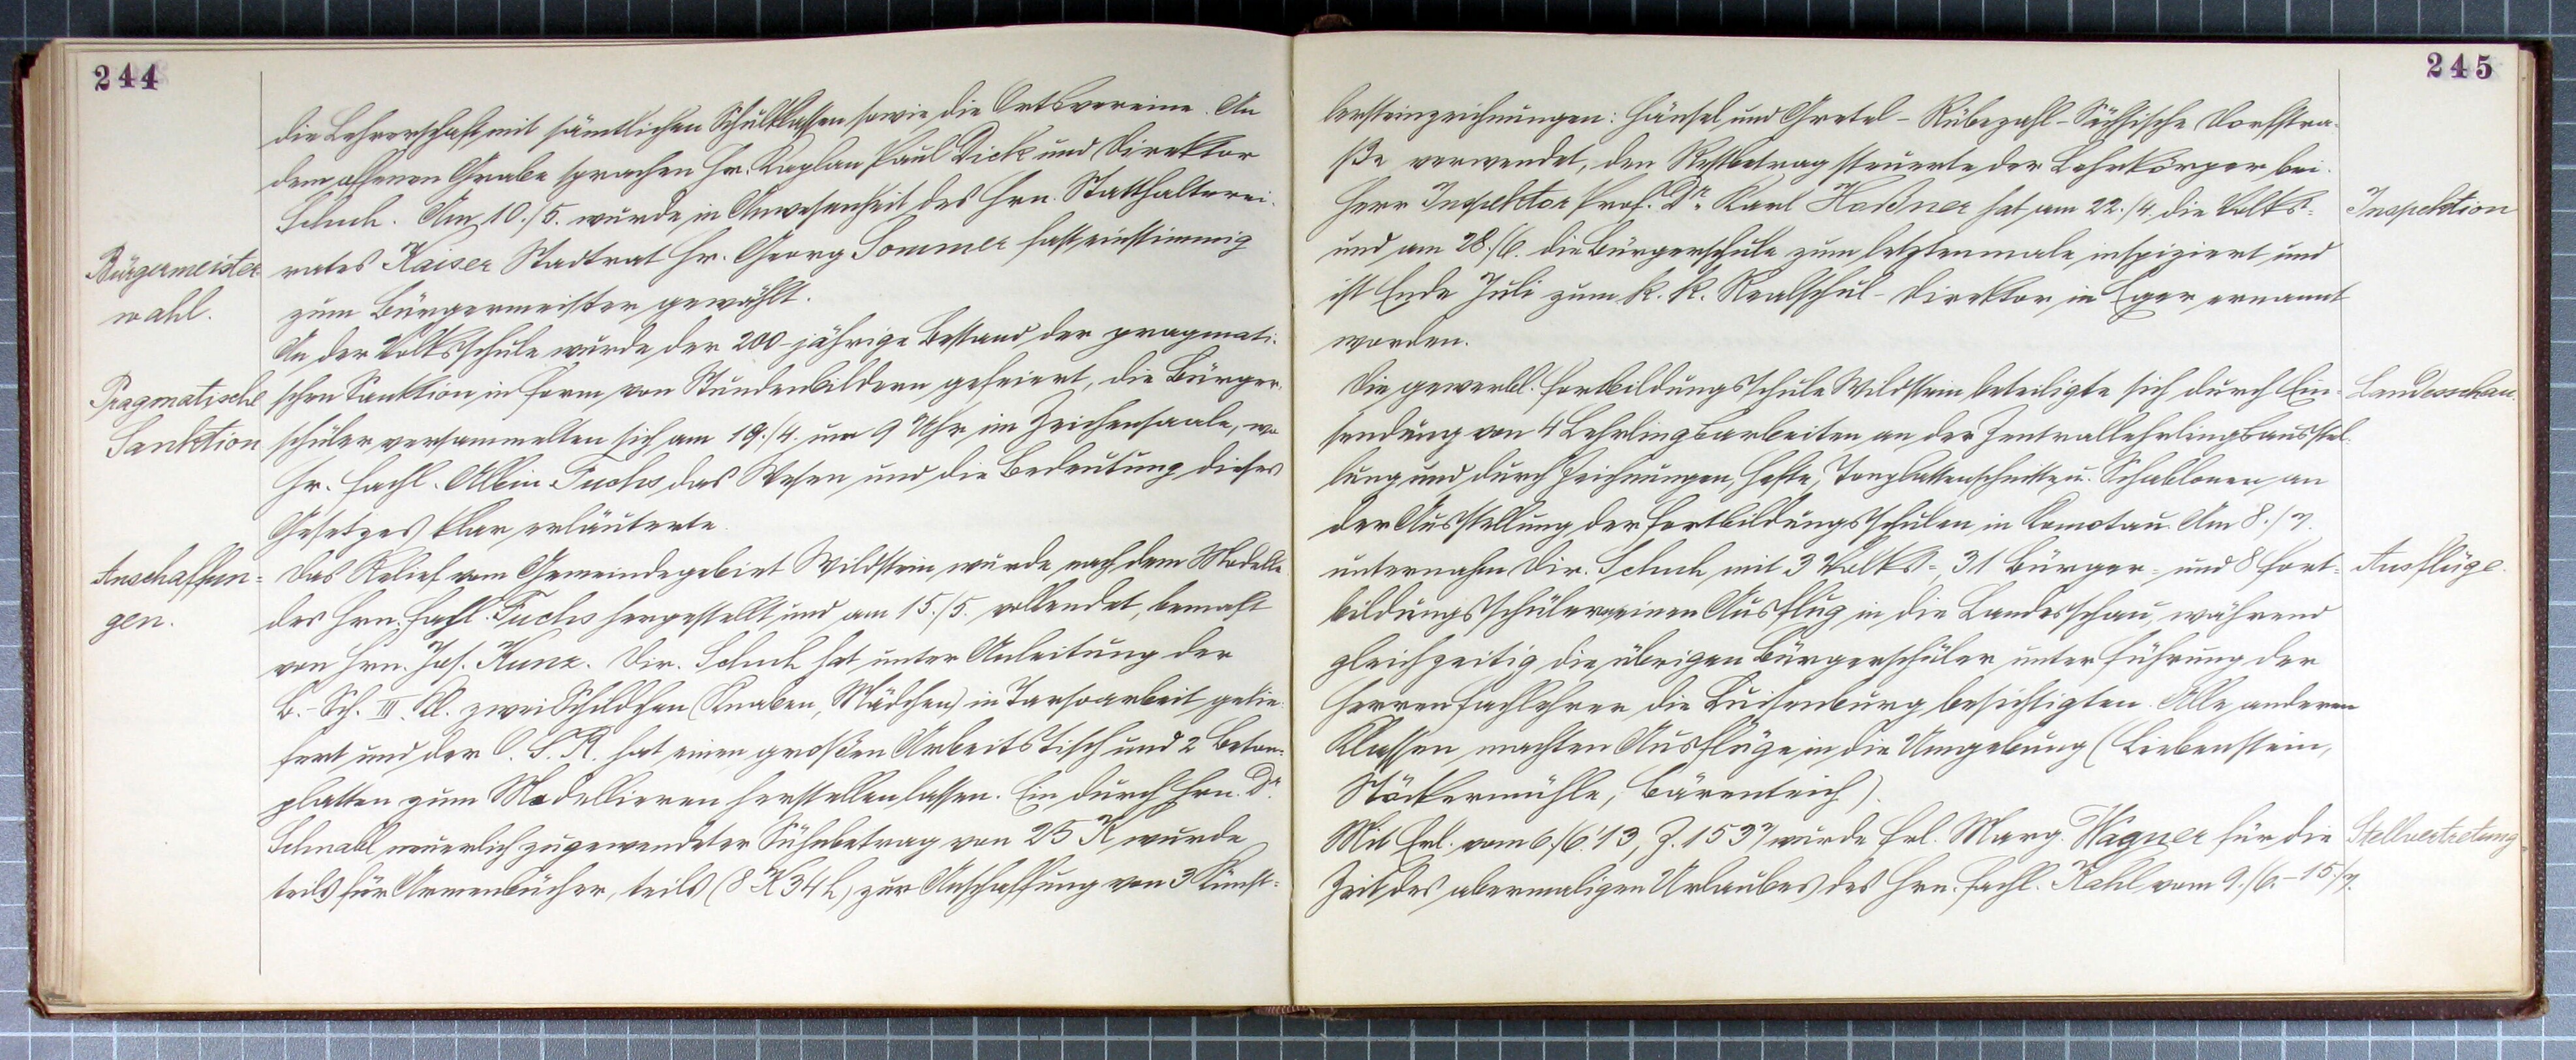 244
die Lehrerschaft mit sämtlichen Schulklassen sowie die Ortsvereine. Am
dem offenen Grabe sprachen Hr. Kaplan Paul Dick und Direktor
Schuh. Am 10./5. wurde in Anwesenheit des Hrn. Statthalterei-
Bürgermeister
rates Kaiser Stadtrat Hr. Georg Sommer fast einstimmig
wahl.
zum Bürgermeister gewählt.
An der Volksschule wurde der 200-jährige Bestand der pragmati-
Pragmatische
schen Sanktion in Form von Stundenbildern gefeiert, die Bürger-
Sanktion
schüler versammelten sich am 19./4. um 9 Uhr im Zeichensaale, wo
Hr. Fachl. Albin Fuchs das Wesen und die Bedeutung dieses
Gesetzes klar erläuterte.
Anschaffun=
Das Relief vom Gemeindegebiet Wildstein wurde nach dem Modelle
gen.
des Hrn. Fachl. Fuchs hergestellt und am 15./5. vollendet, bemalt
von Hrn. Jos. Kunz. Dir. Schuh hat unter Anleitung der
B.-Sch. III. Kl. zwei Schildchen (Knaben, Mädchen) in Tarsoarbeit gelie-
fert und der O. S. R. hat einen großen Arbeitstisch und 2 Beton-
platten zum Modellieren herstellen lassen. Ein durch Hrn. Dr.
Schnabl neuerlich zugewendeter Sühnbetrag von 25 K wurde
teils für Armenbücher, teils (8 K 34 h) zur Anschaffung von 3 Künst-
245
lersteinzeichnungen: Hänsel und Gretel - Rübezahl - Sächsische Dorfstra-
ße verwendet, den Restbetrag steuerte der Lehrkörper bei.
Herr Inspektor Prof. Dr. Karl Haßner hat am 22./4. die Volks=
Inspektion
und am 28./6. die Bürgerschule zum letztenmale inspiziert und
ist Ende Juli zum k. k. Realschul-Direktor in Eger ernannt
worden.
Die gewerbl. Fortbildungsschule Wildstein beteiligte sich durch Ein-
Landesschau.
sendung von 4 Lehrlingsarbeiten an der Zentrallehrlingsausstel-
lung und durch Zeichnungen, Hefte, Tonplattenschnitte u. Schablonen an
der Ausstellung der Fortbildungsschulen in Komotau. Am 8./7.
unternahm Dir. Schuh mit 3 Volks=, 31 Bürger= und 8 Fort=
Ausflüge.
bildungsschülern einen Ausflug in die Landesschau, während
gleichzeitig die übrigen Bürgerschüler unter Führung der
Herren Fachlehrer die Luisenburg besichtigten. Alle anderen
Klassen machten Ausflüge in die Umgebung (Liebenstein,
Stöckermühle, Bärenteich).
Mit Erl. vom 6./6. '13, Z. 1537 wurde Frl. Marg. Wagner für die
Stellvertretung
Zeit des abermaligen Urlaubes des Hrn. Fachl. Kahl vom 9./6. - 15./7.